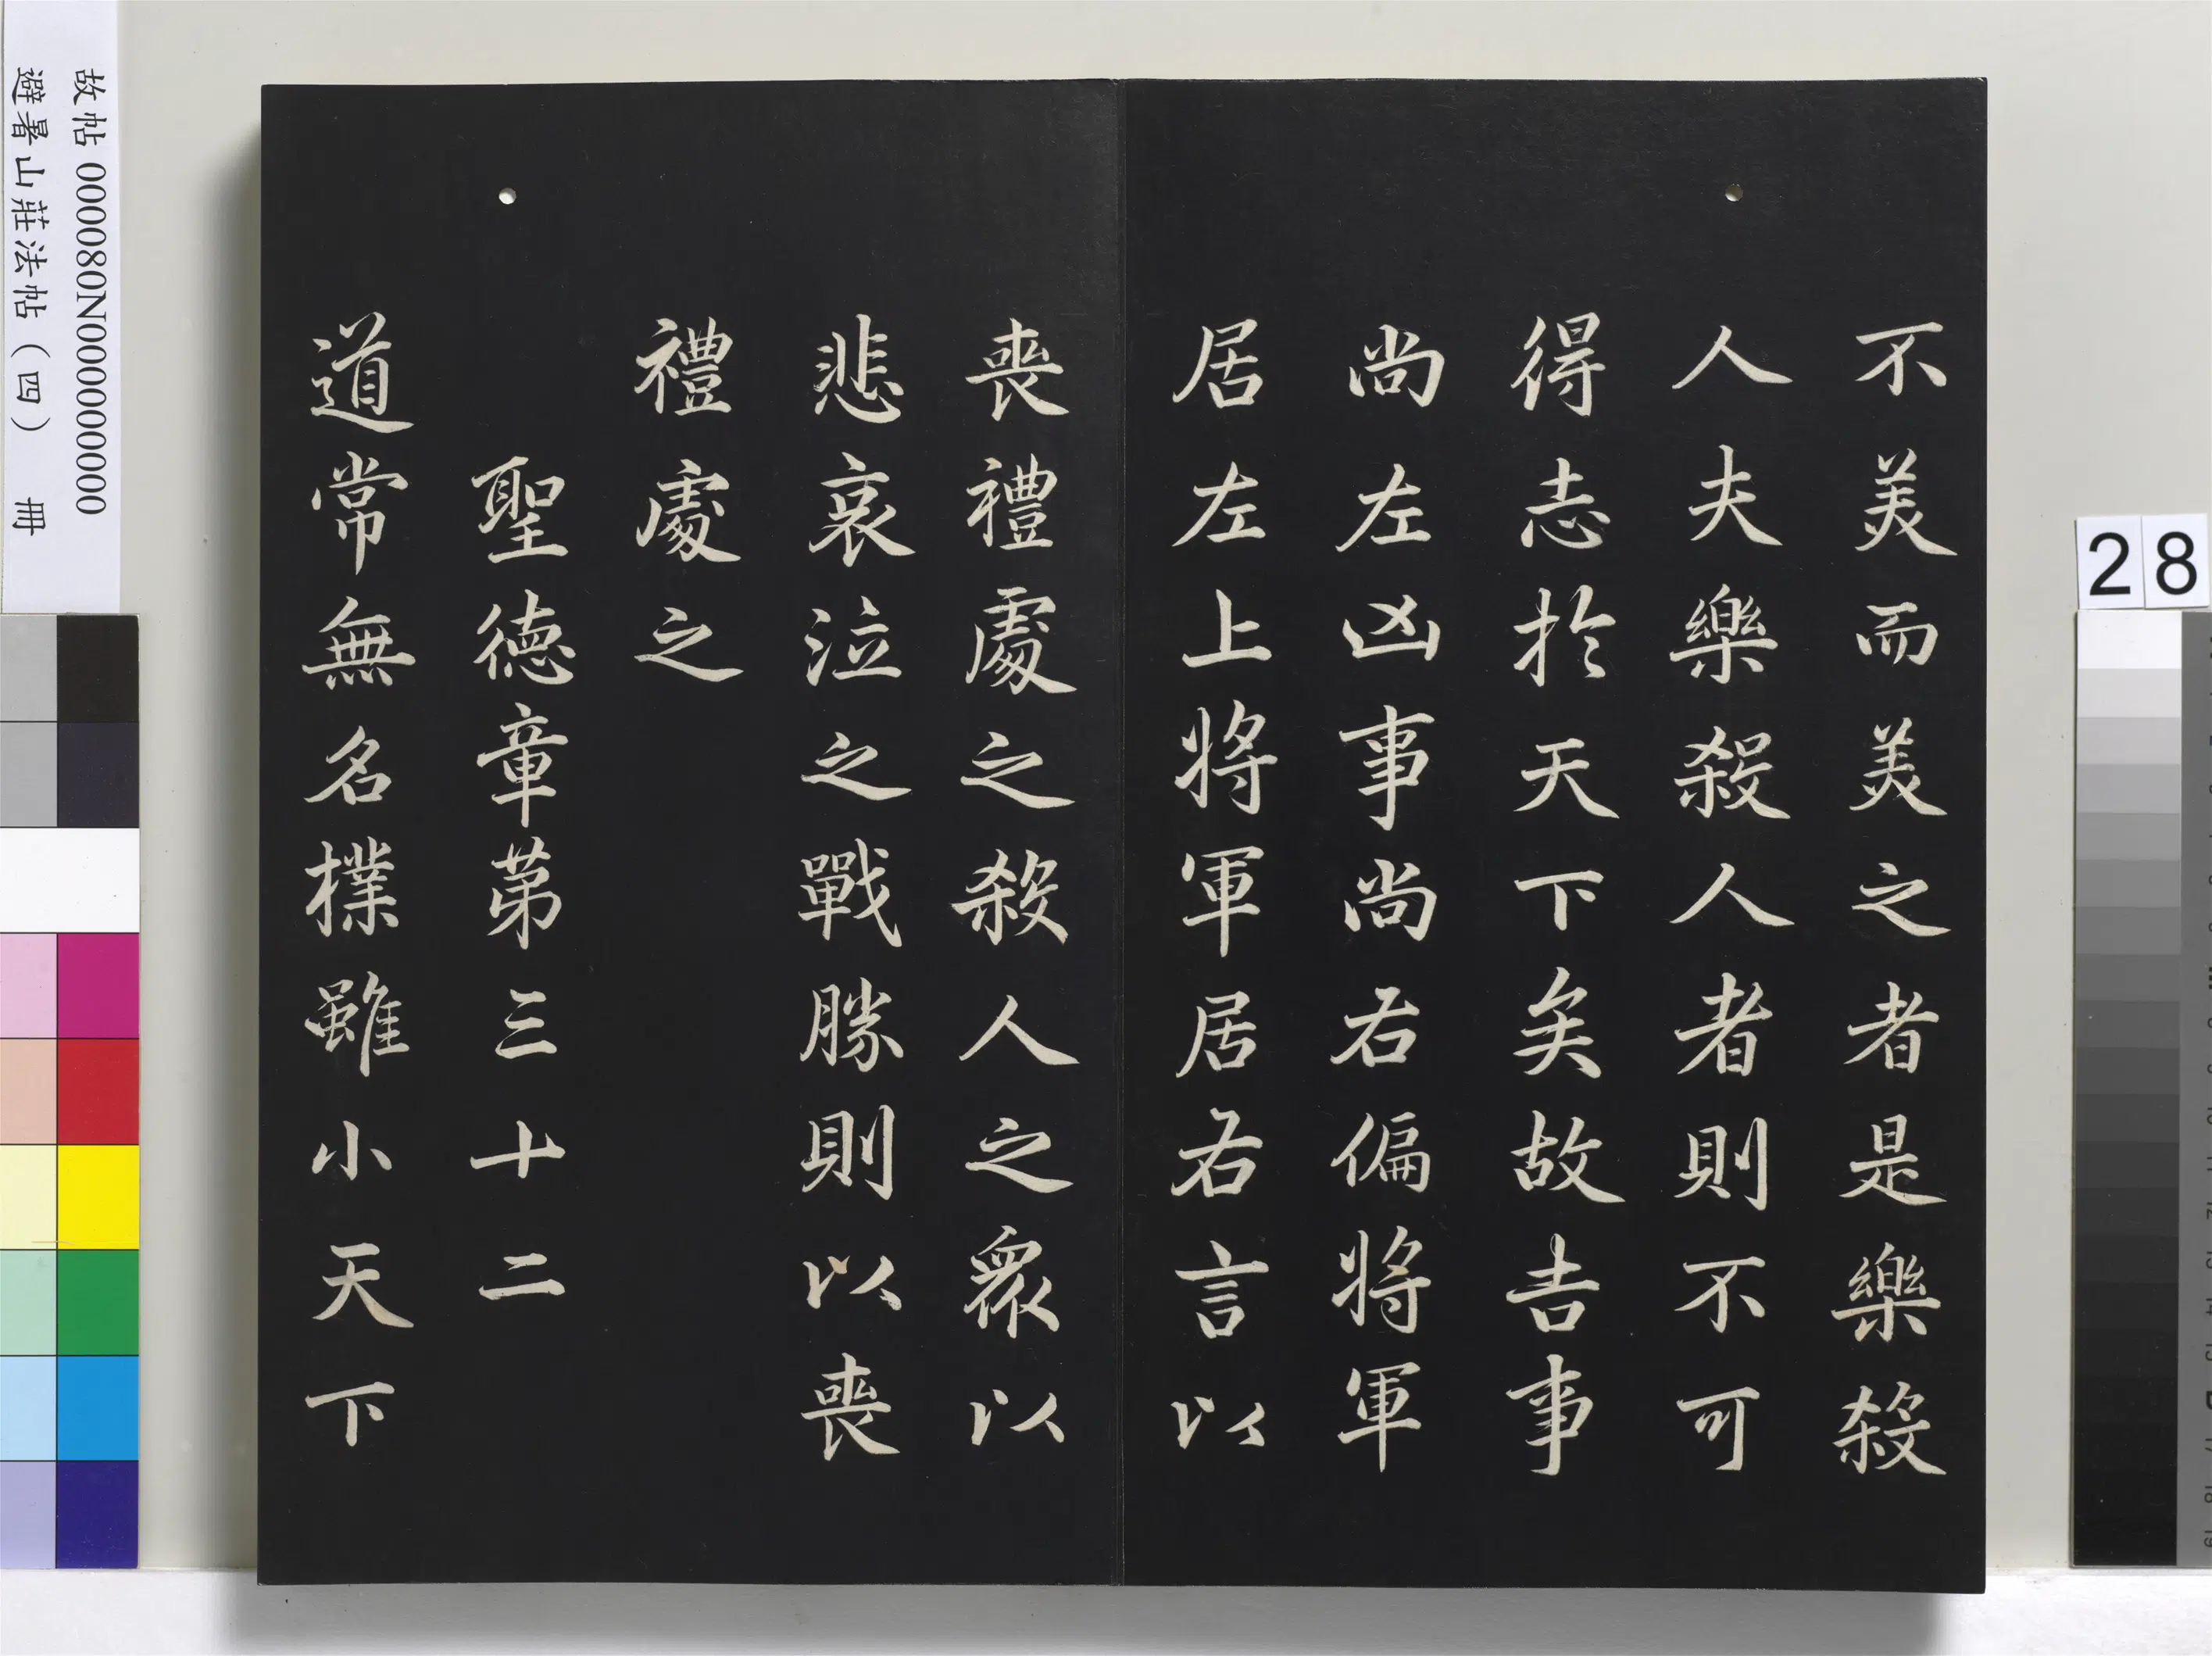 不美而美之者是樂殺
人夫樂殺人者則不可
得志於天下矣故吉事
尚左凶事尚右偏將軍
居左上將軍居右言以
喪禮處之殺人之衆以
悲哀泣之戰勝則以喪
禮處之
聖德章第三十二
道常無名樸雖小天下
故帖 000080N000000000
避暑山莊法帖（四） 冊
28